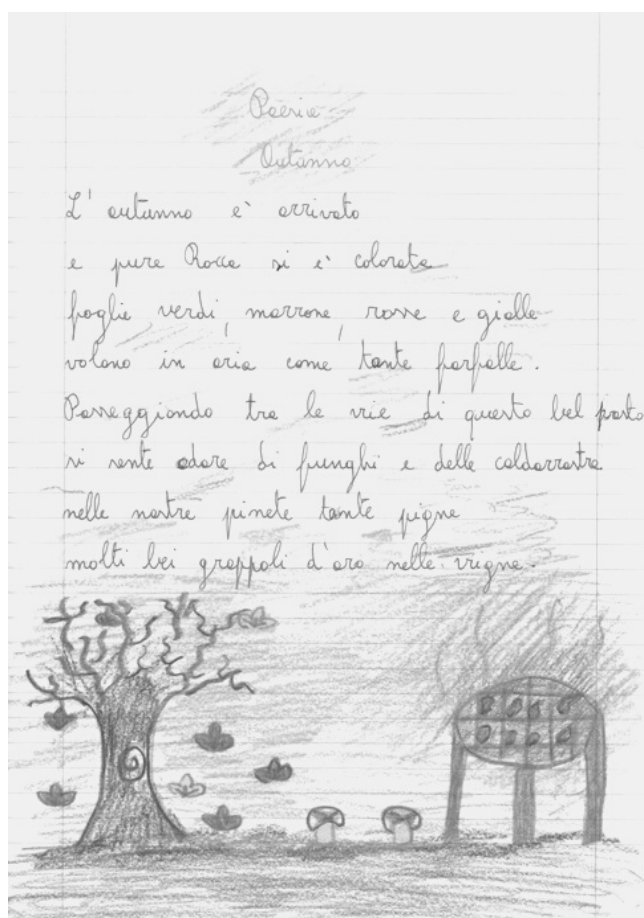 Poesia
Autunno
L'autunno è arrivato
e pure Rocca si è colorata
foglie verdi, marrone, rosse e gialle
volano in aria come tante farfalle.
Passeggiando tra le vie di questo bel posto
si sente odore di funghi e delle caldarroste
nelle nostre pinete tante pigne
molti bei grappoli d'oro nelle vigne.